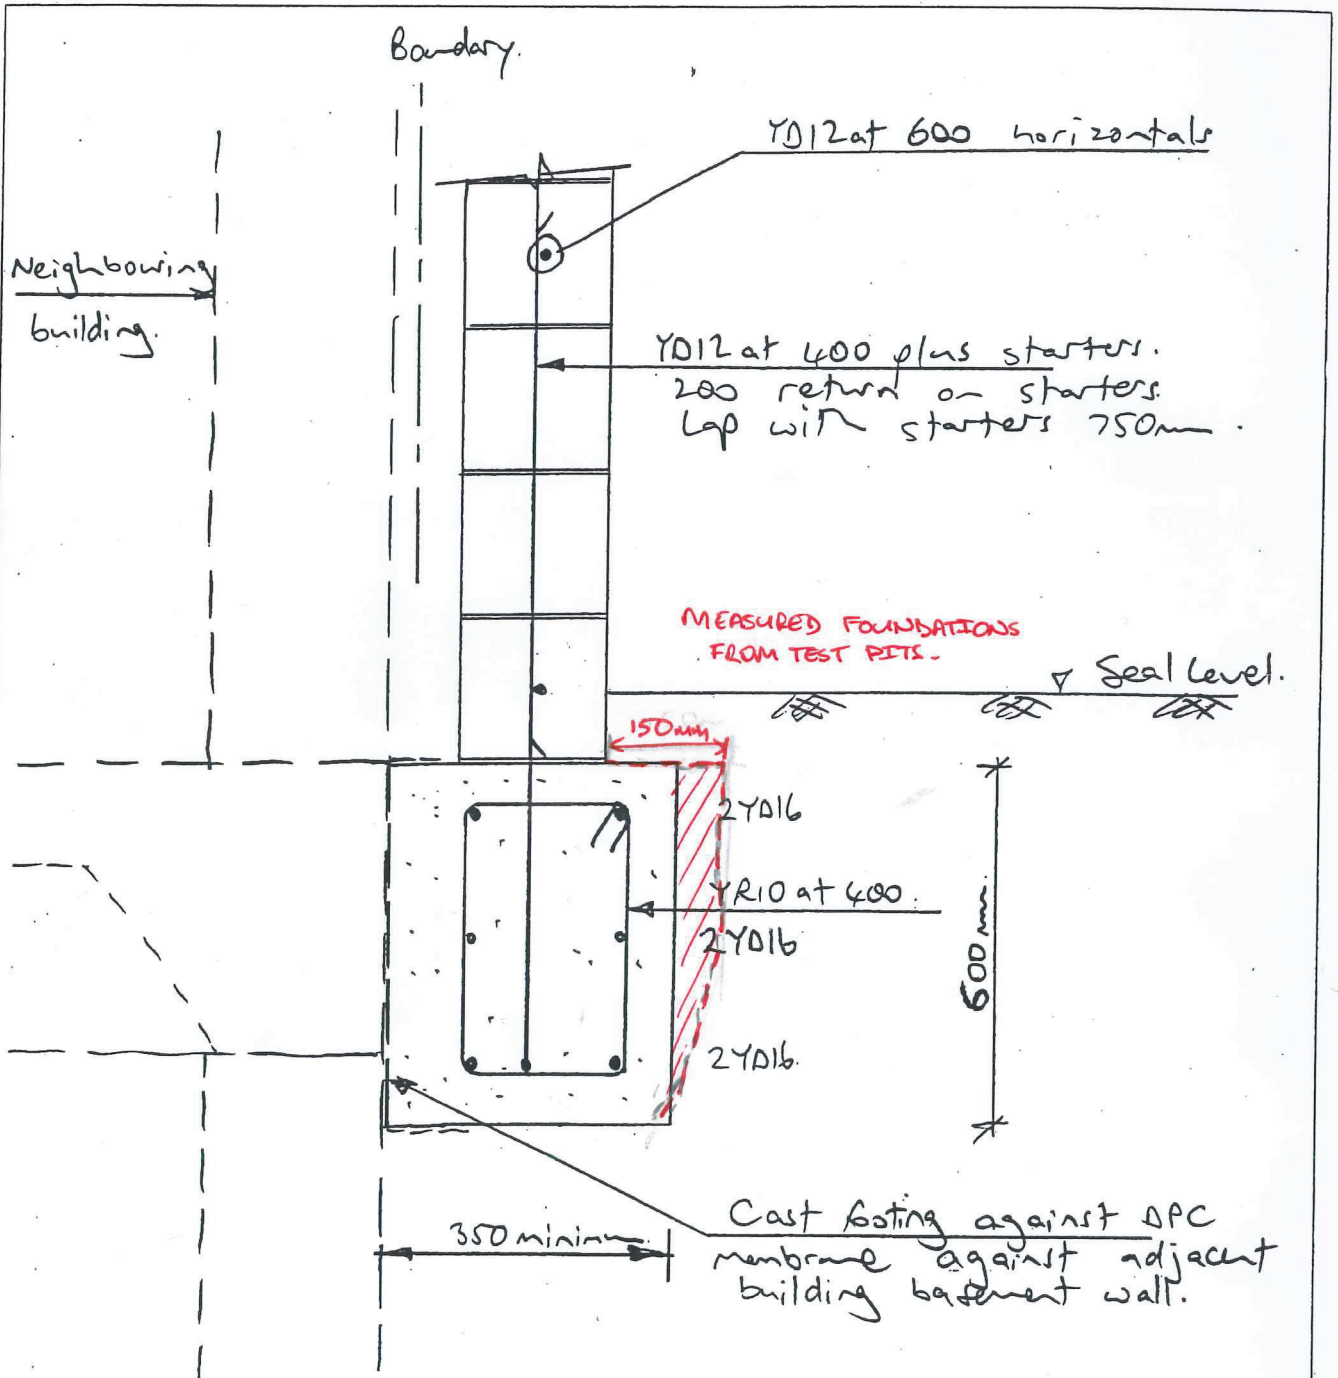 Boundary.
YD12 at 600 horizontals
Neighbouring
building.
YD12 at 400 plus starters.
200 return on starters.
Lap with starters 750mm.
MEASURED FOUNDATIONS
FROM TEST PITS.
Seal Level.
150mm
2YD16
YR10 at 400.
2YD16
600mm
2YD16.
350 minimum.
Cast footing against DPC
membrane against adjacent
building basement wall.